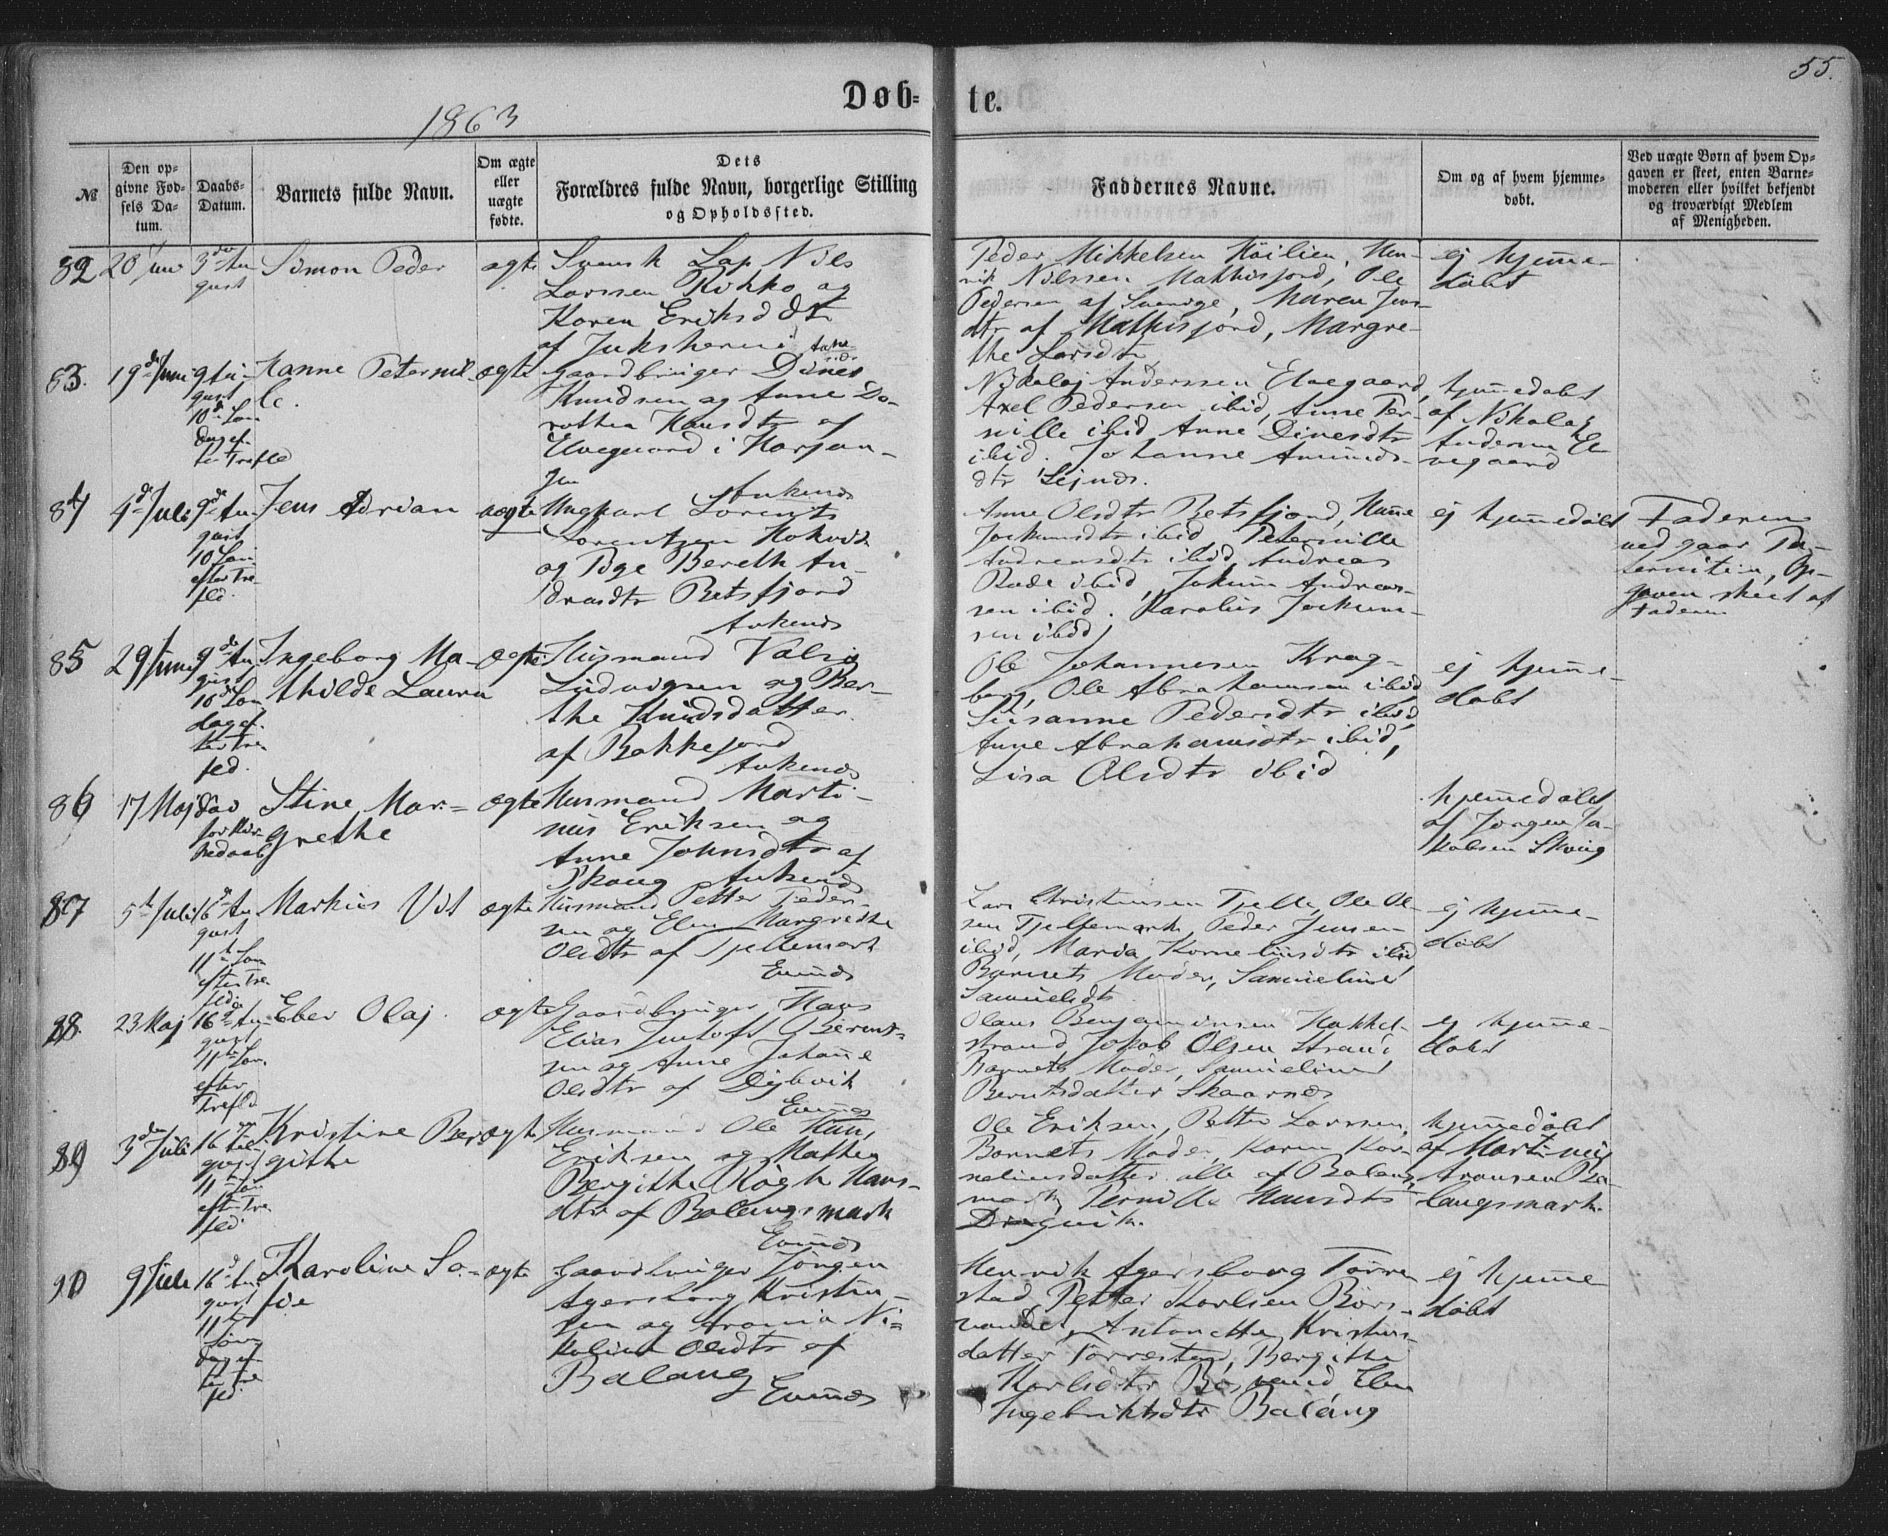 55.
Døb-
te.
1863
№
Den op-
givne Fød-
sels Da-
tum.
Daabs-
Datum.
Barnets fulde Navn.
Om ægte
eller
uægte
fødte.
Dets
Forældres fulde Navn, borgerlige Stilling
og Opholdssted.
Faddernes Navne.
Om og af hvem hjemme-
døbt.
Ved uægte Børn af hvem Op-
gaven er skeet, enten Barne-
moderen eller hvilket bekjendt
og troværdigt Medlem
af Menigheden.
82
3de Au
gust
Simon Peder
ægte
Svensk Lap Nils
Larssen Kikko og
Karen Eriksddtr
af
Peder Mikkelsen
Nilssen Ole
Pedersen af Sverige, Maren Jens
dtr af Mathisfjord, Margre-
the Larsdtr
ej hjemme-
døbt
83.
19de Juni
9 Au
gust
10de Søn
dag ef
ter Trefld
Hanne Peternil-
le.
ægte
Gaardbruger Dines
Knudsen og Anne Do-
rothea Hansdtr af
Elvegaard i
Nikolaj Anderssen Elvegaard,
Axel Pedersen ibid, Anne Per-
nille ibid Anne Dinesdtr
ibid. Johanne
dtr
hjemedøbt
af Nikolaj
Andersen El
vegaard
84
4de Juli
9de Au
gust
10 Søn
efter Tre
fld.
Jens Adrian
uægte
Ungkarl Lorents
Lorentzen
og Pige Bereth An-
dreasdtr Betsfjord
Ankenes
Anne Olsdtr Betsfjord, Hanne
Jockumsdtr ibid, Peternille
Andreasdtr ibid, Andreas
ibid, Jokum Andreas-
sen ibid. Karolius Jockum-
sen ibid
ej hjemedøbt
Faderen
ved gaar Pa-
terniteten, Op-
gaven skeet af
Faderen
85
29 Juni
9de Au
gust
10de Søn
dag ef-
ter Tre
fld.
Ingeborg Ma-
thilde Laura
ægte
Husmand
Ludvigsen og Ber-
the Knudsdatter
af Bakkejord
Ankenes
Ole Johannesen Krag-
borg, Ole Abrahamsen ibid
Susanne Pedersdtr ibid
Anne Abrahamsdtr ibid,
Lisa Olsdtr ibid
ej hjemme-
døbt
86
17 Maj
Død
før Kir-
kedaab
Stine Mar-
grethe
ægte
Husmand Marti-
nus Eriksen og
Anne Johnsdtr af
Ankenes
hjemmedøbt
af Jørgen Ja-
kobsen
87
5te Juli
16de Au
gust
11te Søn
efter Tre
fld
Markus
ægte
Husmand Petter Peder-
sen og Elen Margrethe
Olsdtr af Tjellemark
Evenes
Lars Christensen Tjelle, Ole Ol-
sen Tjellemark, Peder Jensen
ibid, Maria Korneliusdtr ibid
Barnets Moder, Samueline
Samuelsdtr
ej hjemme-
døbt
88.
23 Maj
16de Au
gust
11te Søn
efter
Trefld
Eber Olaj.
ægte
Gaardbruger Hans
Elias Berent-
sen og Anne Johanne
Olsdtr af Dybvik
Evenes
Olaus Benjaminsen
strand Jakob Olsen Strand
Barnets Moder, Samueline
Berntsdatter
ej hjemme-
døbt
89
3de Juli
16de Au
gust
11te Søn
efter Tre
fld.
Kristine Ber
githe
ægte
Husmand Ole
Eriksen og Mathea
Bergithe Hans-
dtr af Balangsmark
Evenes
Ole Eriksen, Petter Larssen,
Barnets Moder, Karen Kor-
neliusdatter alle af Balangs
mark, Pernille Hansdtr
hjemmedøbt
af Martinus
Aronsen Ba-
langsmark.
90
9 Juli
16de Au
gust
11te
Søn
dag ef-
ter Tre
fld.
Karoline So-
fie
ægte
Gaardbruger Jørgen
Agersborg Kristen-
sen og Aronia Ni-
koline Olsdtr af
Balang
Evenes
Henrik Agersborg
Petter Karlsen
Antonette Kristens-
datter Bergithe
Karlsdtr Elen
Ingebriktsdtr Balang
ej hjemme
døbt